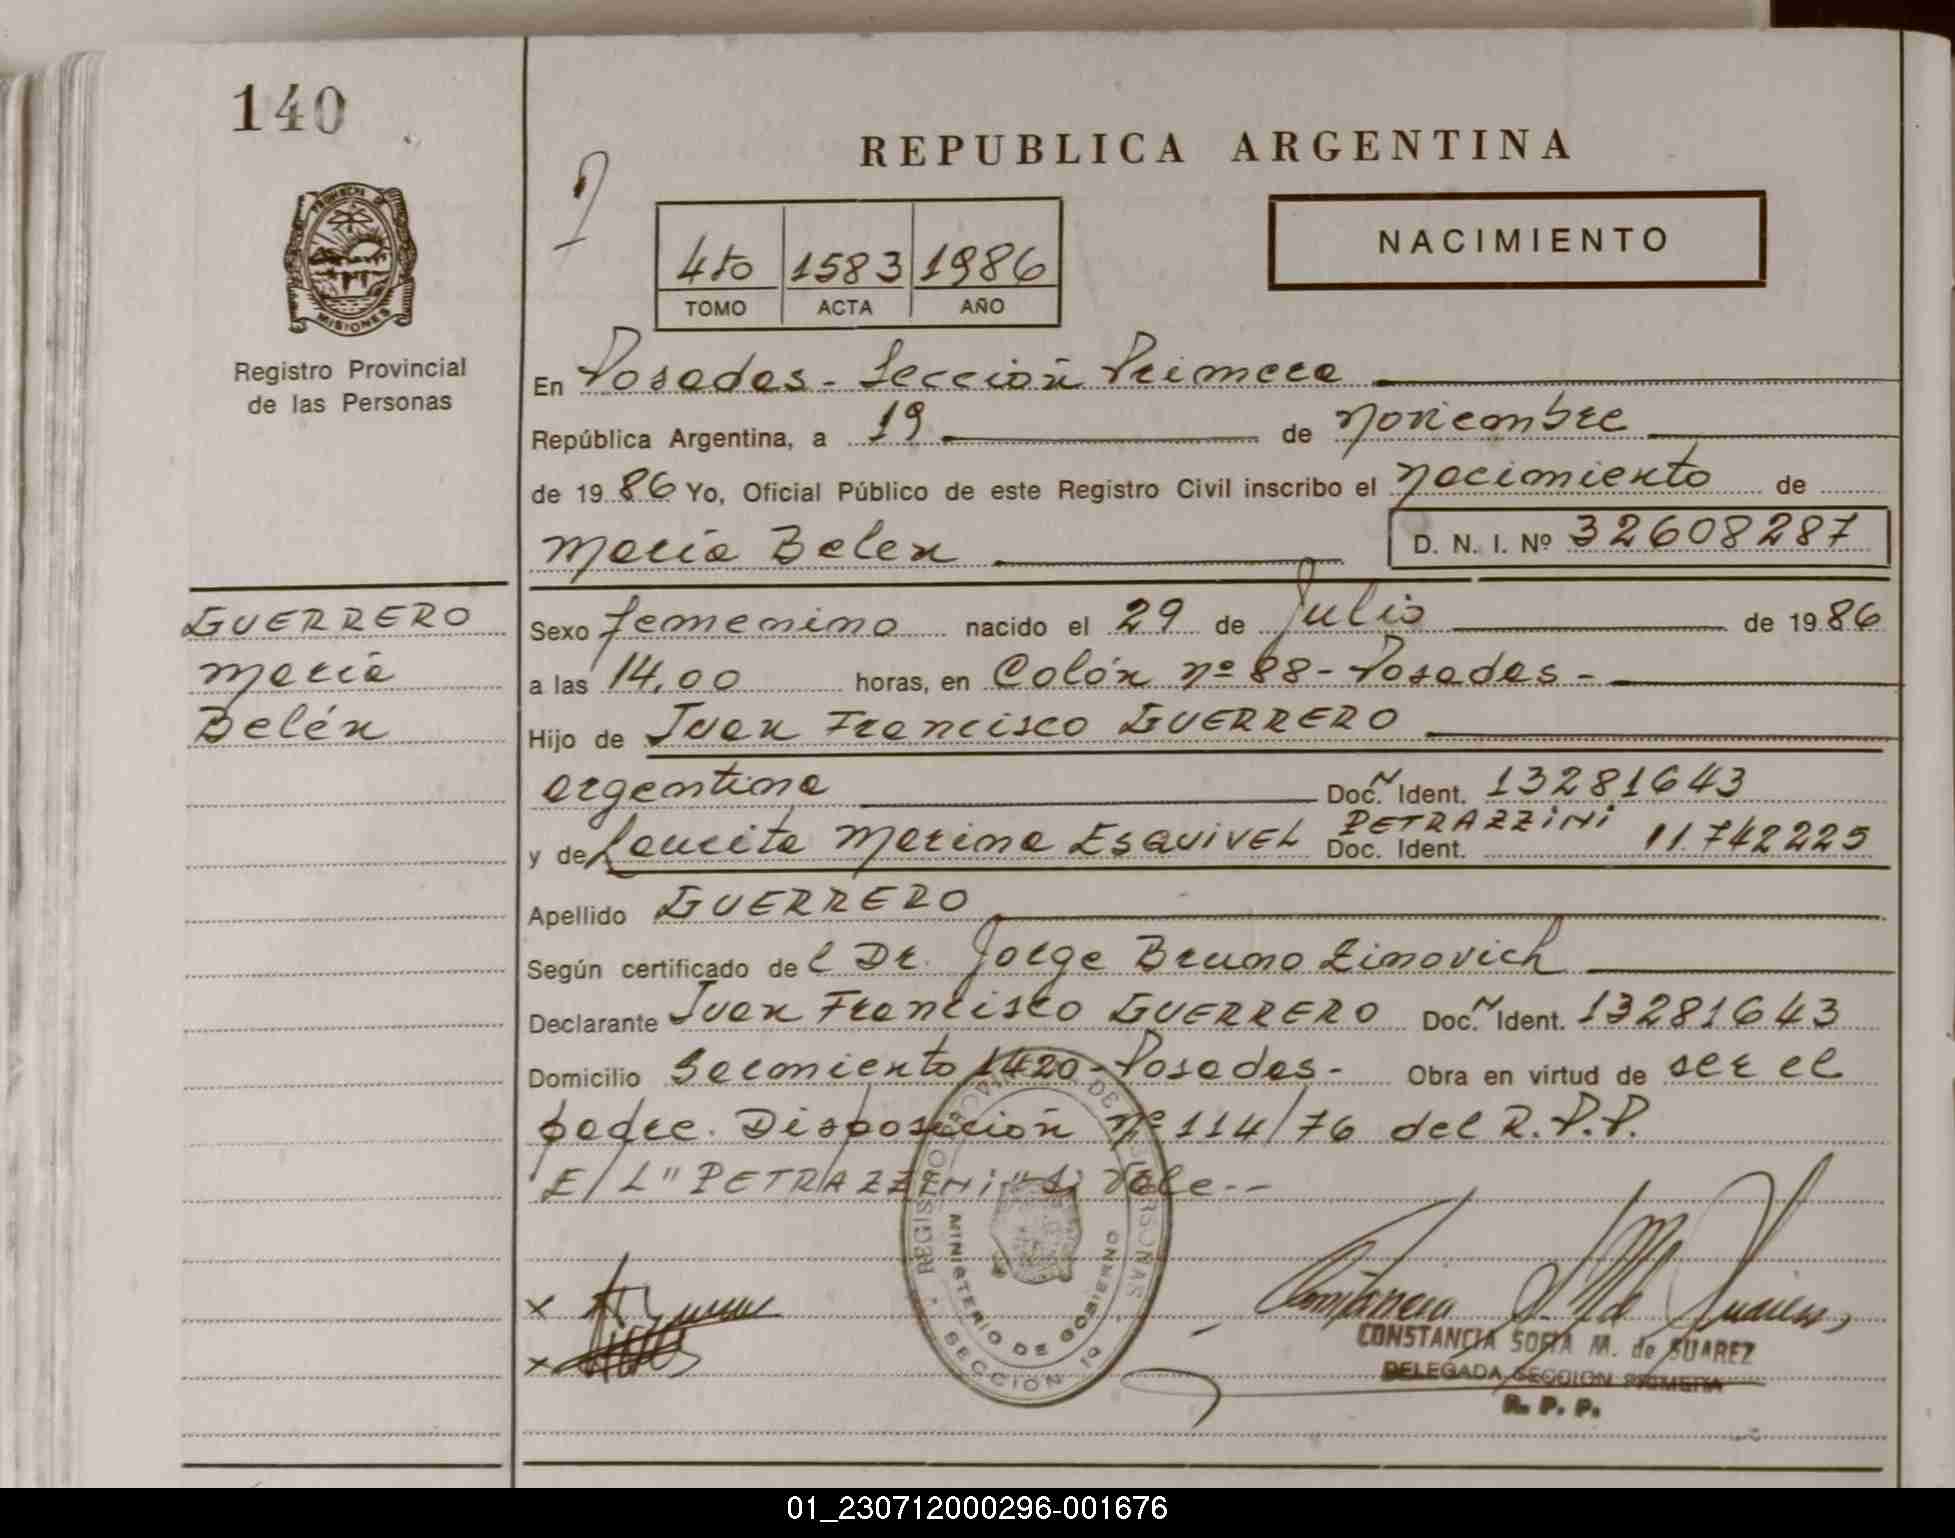 140
REPUBLICA ARGENTINA
PROVINCIA DE
MISIONES
Registro Provincial
de las Personas
4to 1583 1986
TOMO ACTA AÑO
NACIMIENTO
En Posadas - Sección Primera
República Argentina, a 19 de noviembre
de 1986 Yo, Oficial Público de este Registro Civil inscribo el nacimiento de
María Belen D. N. I. Nº 32608287
GUERRERO
María
Belén
Sexo femenino nacido el 29 de Julio de 1986
a las 14,00 horas, en Colón nº 88 - Posadas -
Hijo de Juan Francisco GUERRERO
argentina Doc. N Ident. 13281643
PETRAZZINI
y de Laurita Marina ESQUIVEL Doc. Ident. 11.742225
Apellido GUERRERO
Según certificado del Dr. Jorge Bruno Zimovich
Declarante Juan Francisco GUERRERO Doc. N Ident. 13281643
Domicilio Sarmiento 1420 - Posadas - Obra en virtud de ser el
padre. Disposición nº 114/76 del R.P.P.
E/L "PETRAZZINI" Si Vale--
REGISTRO PROVINCIAL DE LAS PERSONAS
MINISTERIO DE GOBIERNO
SECCION 1ª
x
x
Constancia S. M. de Suarez
CONSTANCIA SOFIA M. de SUAREZ
DELEGADA SECCION PRIMERA
R. P. P.
01_230712000296-001676